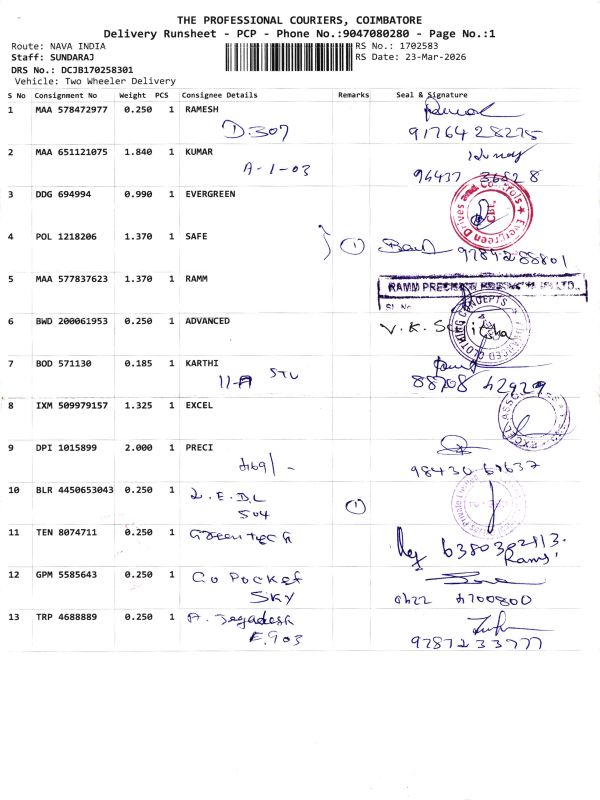 THE PROFESSIONAL COURIERS, COIMBATORE
Delivery Runsheet - PCP - Phone No.:9047080280 - Page No.:1
Route: NAVA INDIA
RS No.: 1702583
Staff: SUNDARAJ
RS Date: 23-Mar-2026
DRS No.: DCJB170258301
Vehicle: Two Wheeler Delivery
S No Consignment No Weight PCS Consignee Details Remarks Seal & Signature
1 MAA 578472977 0.250 1 RAMESH
D.307 91764 28275
2 MAA 651121075 1.840 1 KUMAR
A-1-03 96437 36828
3 DDG 694994 0.990 1 EVERGREEN
Evergreen Drives and Controls
CBE.
4 POL 1218206 1.370 1 SAFE
1
5 MAA 577837623 1.370 1 RAMM
RAMM PRECISION LTD.,
Sl. No
6 BWD 200061953 0.250 1 ADVANCED
V. K.
ADVANCED CLOTHING CONCEPTS
7 BOD 571130 0.185 1 KARTHI
88708 42929
8 IXM 509979157 1.325 1 EXCEL
EXCEL
9 DPI 1015899 2.000 1 PRECI
98430 61637
10 BLR 4450653043 0.250 1 L.E.D.L
504
1
Private Limited
11 TEN 8074711 0.250 1 Greentech
6380302113.
Rams
12 GPM 5585643 0.250 1 Go Pocket
SKY
13 TRP 4688889 0.250 1 A. Jegadesh
F.903 9787233777